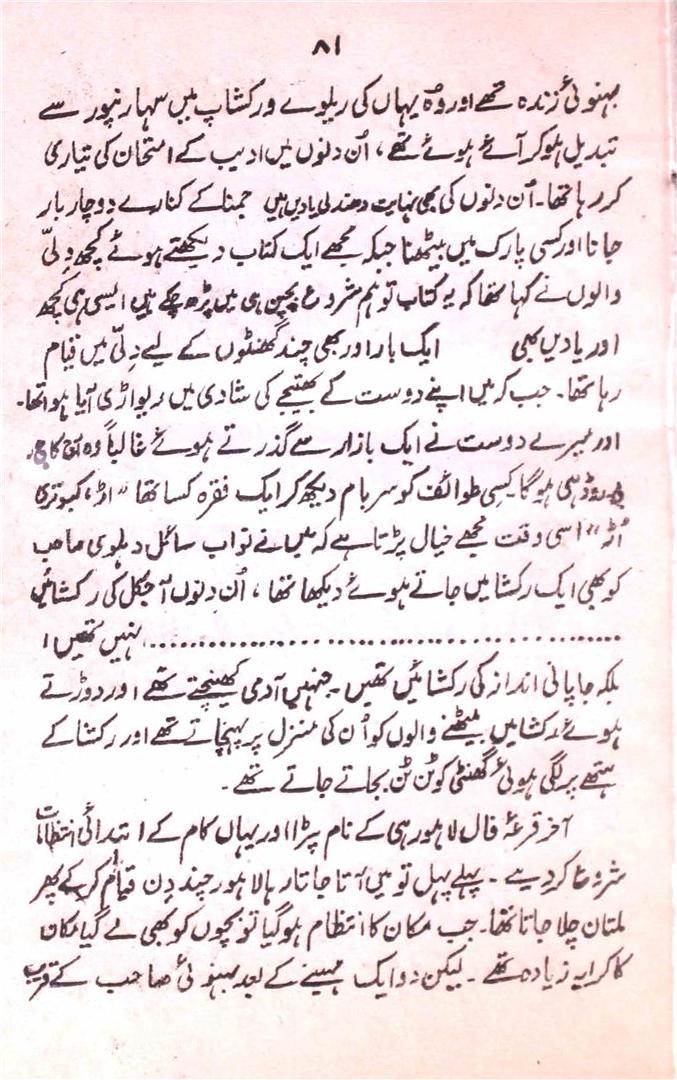 ۸۱
بہنوئی زندہ تھے اور وہ یہاں کی ریلوے ورکشاپ میں سہارنپور سے
تبدیل ہو کر آئے ہوئے تھے، اُن دنوں میں ادیب کے امتحان کی تیاری
کر رہا تھا۔ اُن دنوں کی بھی نہایت دھندلی یادیں ہیں جمنا کے کنارے دوچار بار
جانا اور کسی پارک میں بیٹھنا جبکہ مجھے ایک کتاب دیکھتے ہوئے کچھ دِلّی
والوں نے کہا تھا کہ یہ کتاب تو ہم شروع بچپن ہی میں پڑھ چکے ہیں ایسی ہی کچھ
اور یادیں بھی ایک بار اور بھی چند گھنٹوں کے لیے دِلّی میں قیام
رہا تھا۔ جب کہ میں اپنے دوست کے بھتیجے کی شادی میں ریواڑی آیا ہوا تھا۔
اور میرے دوست نے ایک بازار سے گذرتے ہوئے غالباً وہ آج کا
روڈ ہی ہوگا کسی طوائف کو سرِبام دیکھ کر ایک فقرہ کسا تھا "اڑ، کبوتری
اُڑ" اسی وقت مجھے خیال پڑتا ہے کہ میں نے نواب سائل دہلوی صاحب
کو بھی ایک رکشا میں جاتے ہوئے دیکھا تھا، اُن دِنوں آجکل کی رکشائیں
.......................................نہیں تھیں ا
بلکہ جاپانی انداز کی رکشائیں تھیں۔ جنہیں آدمی کھینچتے تھے اور دوڑتے
ہوئے رکشا میں بیٹھنے والوں کو اُن کی منزل پر پہنچاتے تھے اور رکشا کے
ہتھے پر لگی ہوئی گھنٹی کو ٹن ٹن بجاتے جاتے تھے۔
آخر قرعۂ فال لاہور ہی کے نام پڑا اور یہاں کام کے ابتدائی انتظامات
شروع کردیے۔ پہلے پہل تو میں آتا جاتا رہا لاہور چند دِن قیام کر کے پھر
ملتان چلا جاتا تھا۔ جب مکان کا انتظام ہوگیا تو بچوں کو بھی لے گیا مکان
کا کرایہ زیادہ تھے۔ لیکن دو ایک مہینے کے بعد بہنوئی صاحب کے قریب